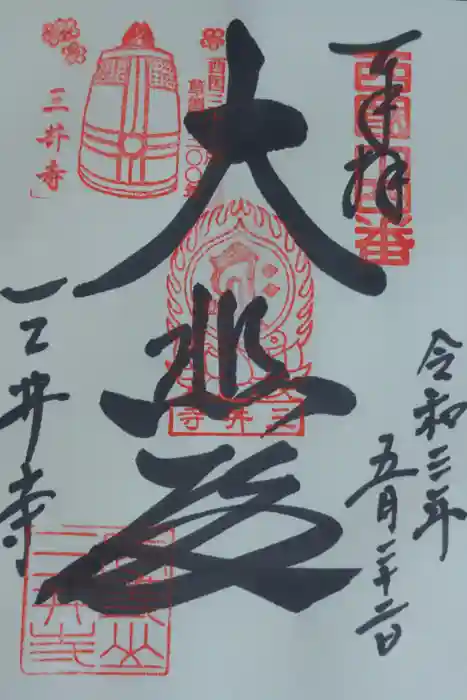 奉拝
西国十四番
令和三年
五月二十二日
大悲殿
三井寺
三井寺
三井寺